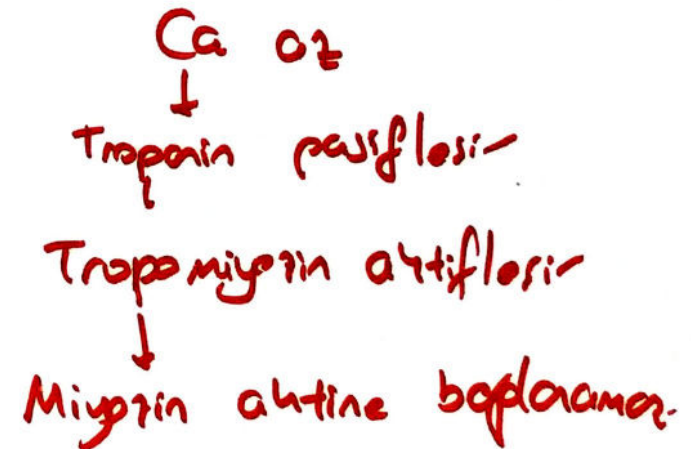 Ca az
↓
Troponin pasifleşir
Tropomiyozin aktifleşir
↓
Miyozin aktine bağlanamaz.